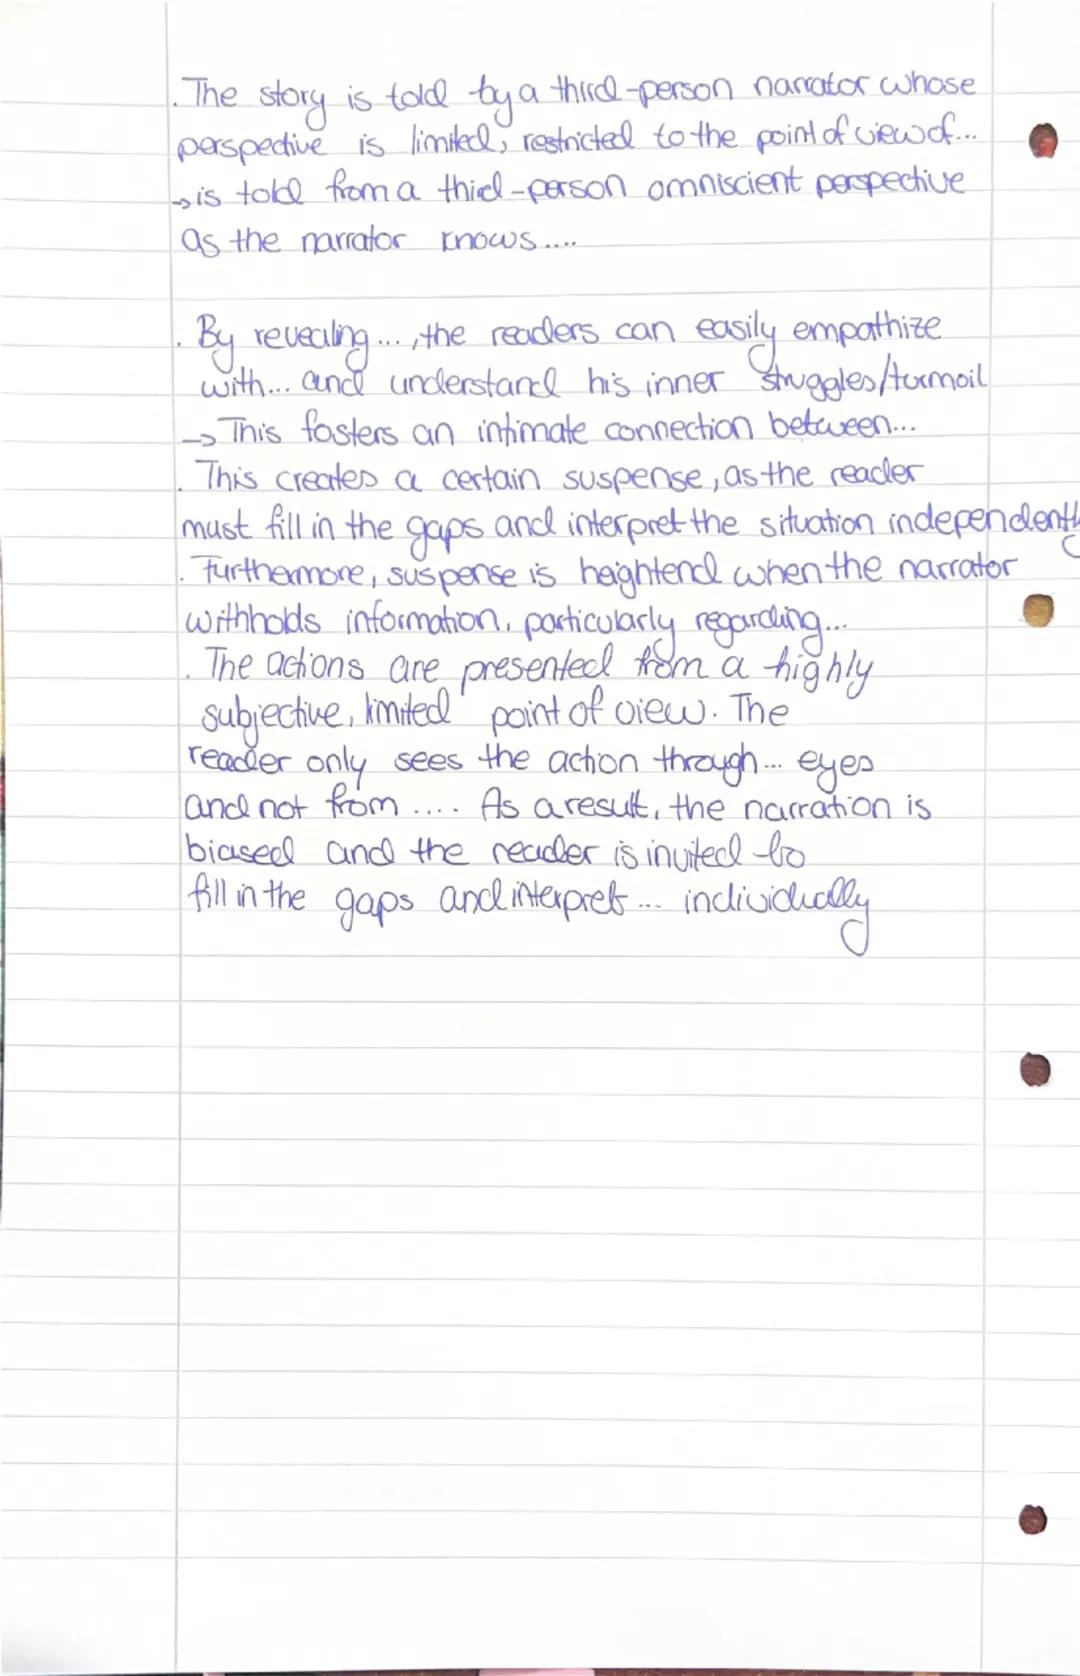 . The story is told by a third-person narrator whose
perspective is limited, restricted to the point of view of...
→ is told from a third-person omniscient perspective
as the narrator knows....
. By revealing..., the readers can easily empathize
with... and understand his inner struggles/turmoil
→ This fosters an intimate connection between...
. This creates a certain suspense, as the reader
must fill in the gaps and interpret the situation independently
. Furthermore, suspense is heightend when the narrator
withholds information, particularly regarding...
. The actions are presented from a highly
subjective, limited point of view. The
reader only sees the action through... eyes
and not from .... As a result, the narration is
biased and the reader is invited to
fill in the gaps and interpret ... individually